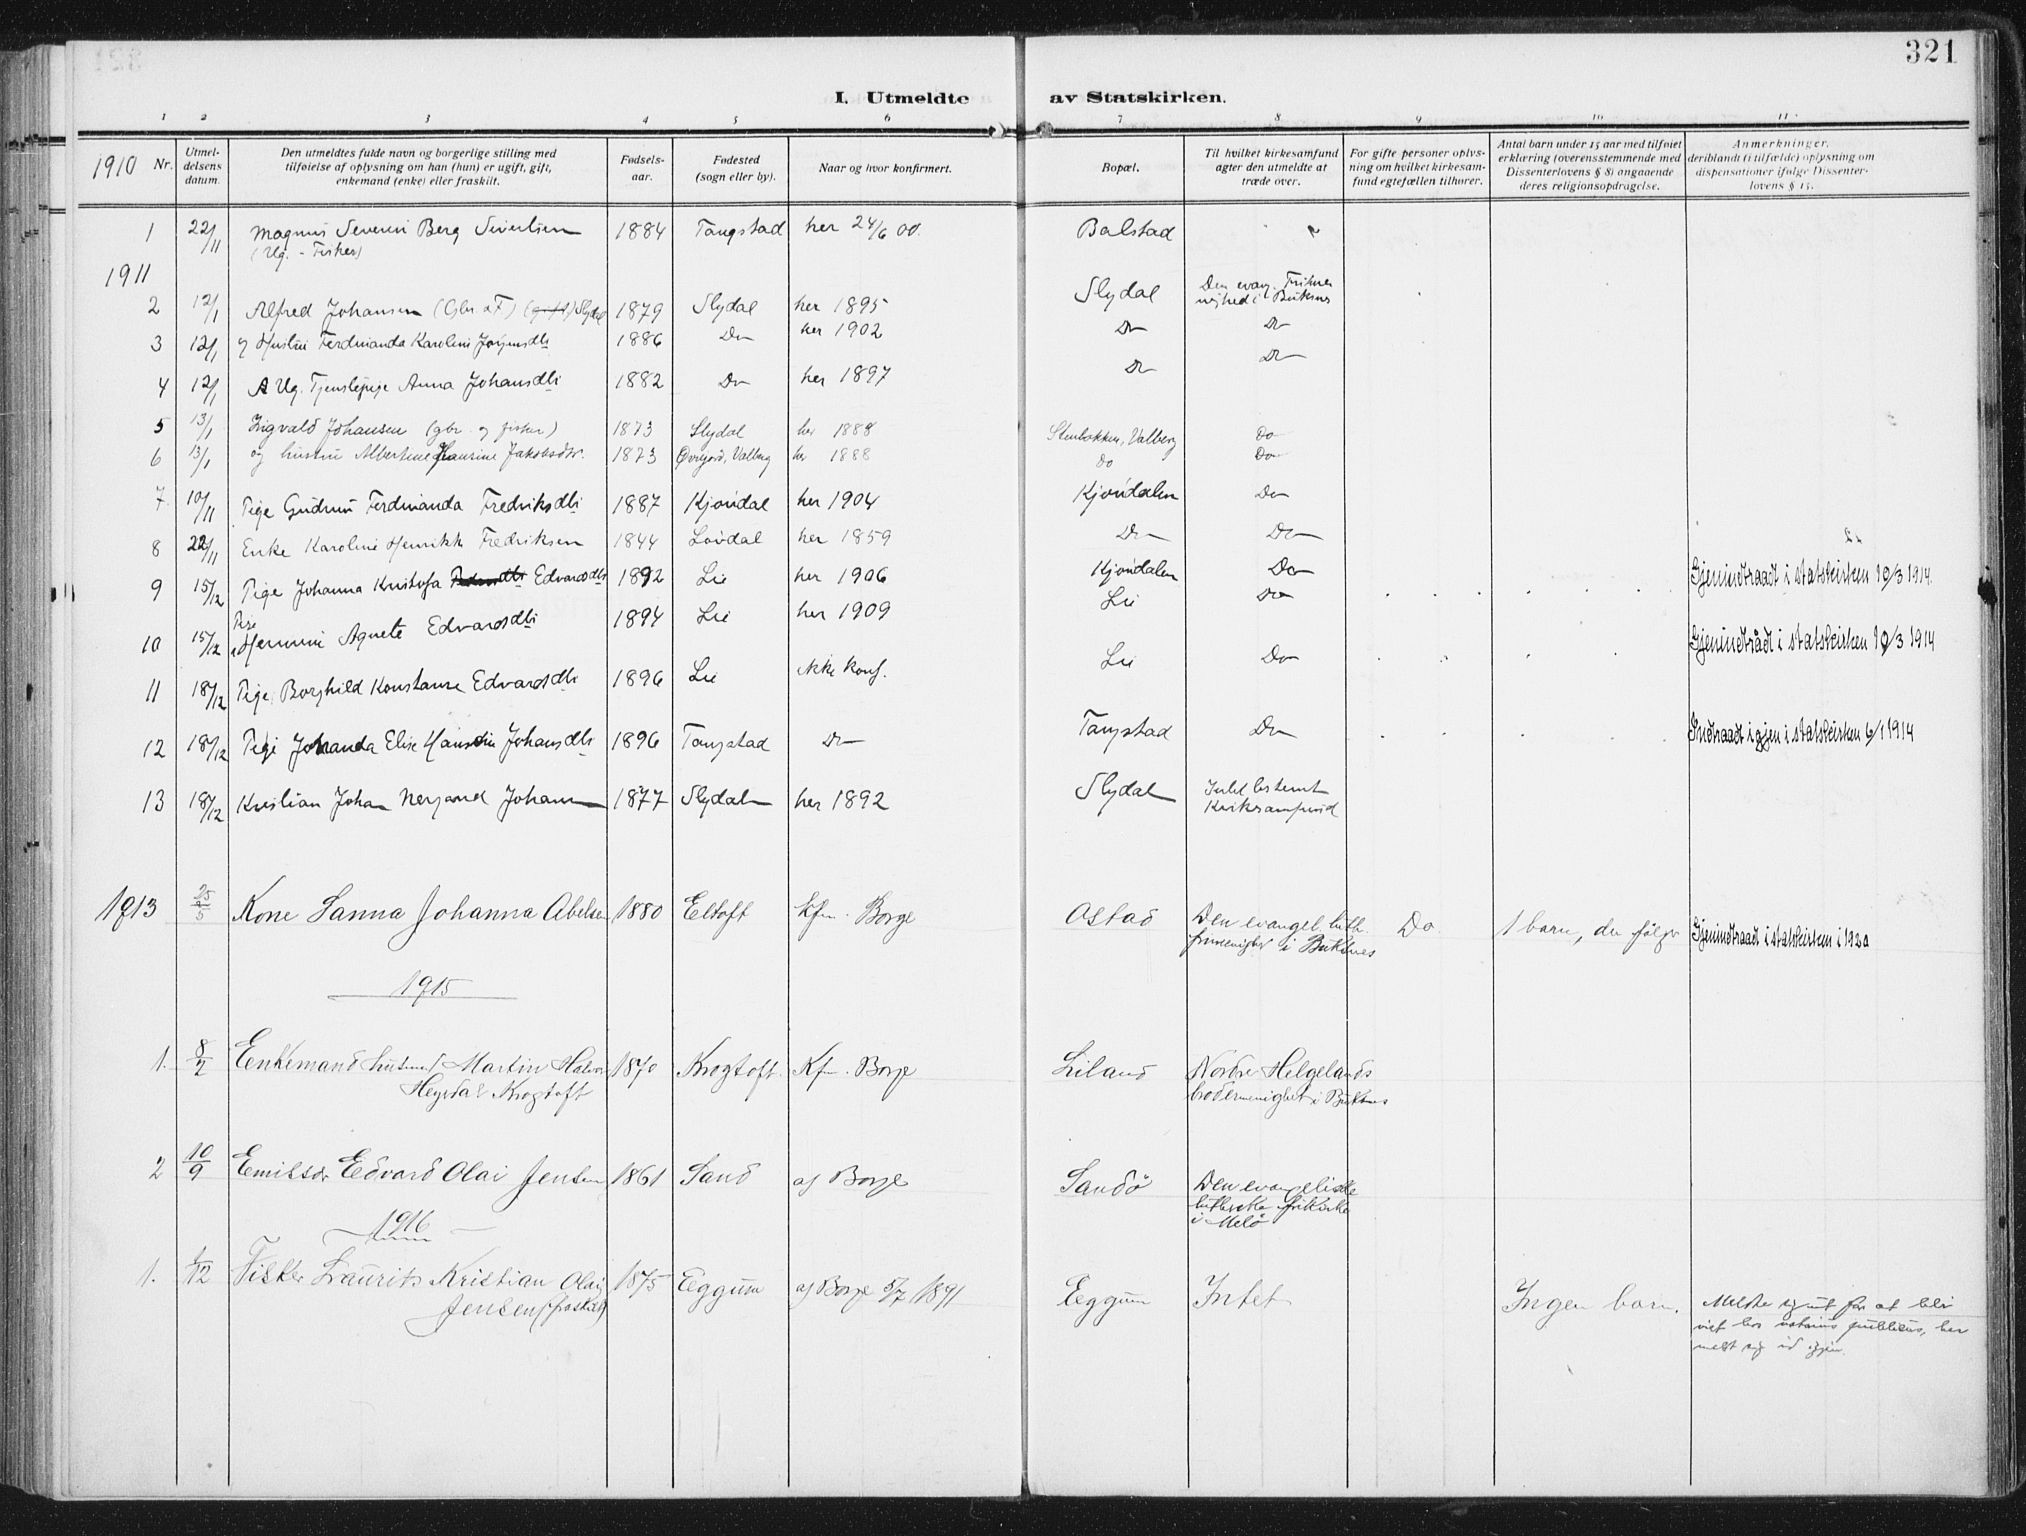 321
I. Utmeldte av Statskirken.
1 2 3 4 5 6 7 8 9 10 11
1910 Nr. Utmel-delsens datum. Den utmeldtes fulde navn og borgerlige stilling med tilføielse af oplysning om han (hun) er ugift, gift, enkemand (enke) eller fraskilt. Fødsels-aar. Fødested (sogn eller by). Naar og hvor konfirmert. Bopæl. Til hvilket kirkesamfund agter den utmeldte at træde over. For gifte personer oplys-ning om hvilket kirkesam-fund egtefællen tilhører. Antal barn under 15 aar med tilføiet erklæring (overensstemmende med Dissenterlovens § 8) angaaende deres religionsopdragelse. Anmerkninger, deriblandt (i tilfælde) oplysning om dispensationer ifølge Dissenter-lovens § 15.
1 22/11 Magnus Severin Berg Sivertsen 1884 Tangstad her 24/6 00. Balstad
(Ug. - Fisker)
1911
2 12/1 Alfred Johansen (Gbr & F) (gift) Slydal 1879 Slydal her 1895 Slydal Den evang. Frime
nighed i Buksnes
3 12/1 og Hustru Ferdinanda Karoline Jørgensdtr 1886 Do her 1902 Do Do
4 12/1 Ug. Tjenestepige Anna Johansdtr 1882 Do her 1897 Do Do
5 13/1 Sigvald Johansen (gbr. og fisker) 1873 Slydal her 1888 Stenbakken, Valberg Do
6 13/1 og hustru Albertine Jakobsdtr. 1873 Øvregård, Valberg her 1888 Do Do
7. 10/11 Pige Gudrun Ferdinanda Fredriksdtr 1887 Kjøndal her 1904 Kjøndalen Do
8 22/11 Enke Karoline Henrikke Fredriksen 1844 Løvdal her 1859 Do Do
9 15/12 Pige Johanna Kristofa Edvardsdtr 1892 Lie her 1906 Kjøndalen Do Gjenindtraadt i statskirken 19/3 1914.
10 15/12 Pige Hermine Agnete Edvardsdtr 1894 Lie her 1909 Lie Do Gjenindtrådt i statskirken 19/3 1914
11 18/12 Pige Borghild Konstanse Edvardsdtr 1896 Lie ikke konf. Lie Do
12 18/12 Pige Johanda Elise Hansine Johansdtr 1896 Tangstad Do Tangstad Do Indtraadt igjen i statskirken 6/1 1914
13 18/12 Kristian Johan Nergaard Johansen 1877 Slydal her 1892 Slydal Intet bestemt
Kirkesamfund
1913 25/5 Kone Sanna Johanna Abelsen 1880 Eltoft kfm. Borge Ostad Den evangel. luth. Do 1 barn, der følger Gjenindtraadt i statskirken i 1920
frimenighet i Buksnes
1915
1. 8/2 Enkemand husmd Martin Halvor 1870 Krogtoft. Kfm. Borge Liland Nordre Helgelands
Hegsdal Krogtoft brodermenighet i Buksnes
2 10/9 Emissær Edvard Olai Jensen 1861 Sand af Borge Sandö Den evangeliske
lutherske frikirke
i Melö
1916
1. 1/12 Fisker Laurits Kristian Olai 1875 Eggum af Borge 5/7 1891 Eggum Intet Ingen barn. Meldte sig ut for at bli
Jensen (fraskilt) viet hos notarius publicus, har
meldt sig ind igjen.